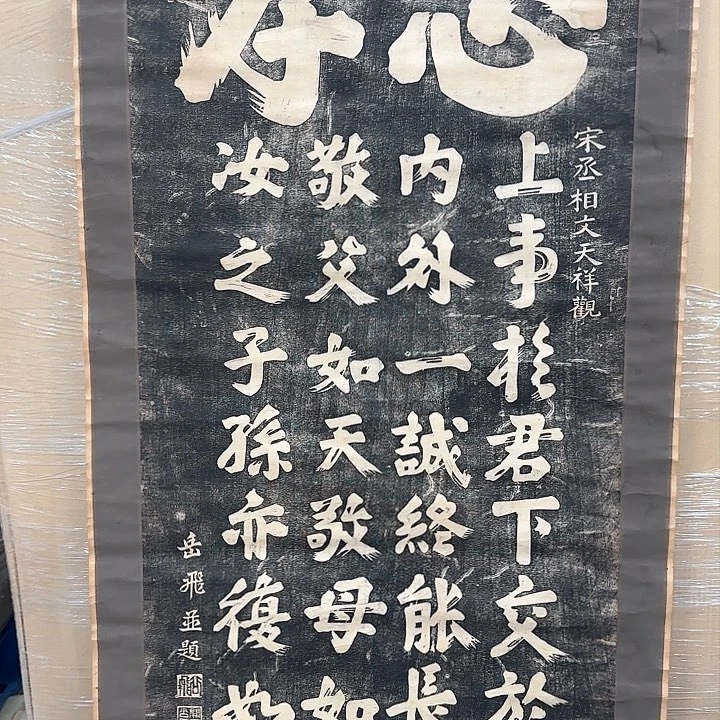 宋丞相文天祥觀
上事扵君下交於
内外一誠終能長
敬父如天敬母如
汝之子孫亦復如
岳飛並題